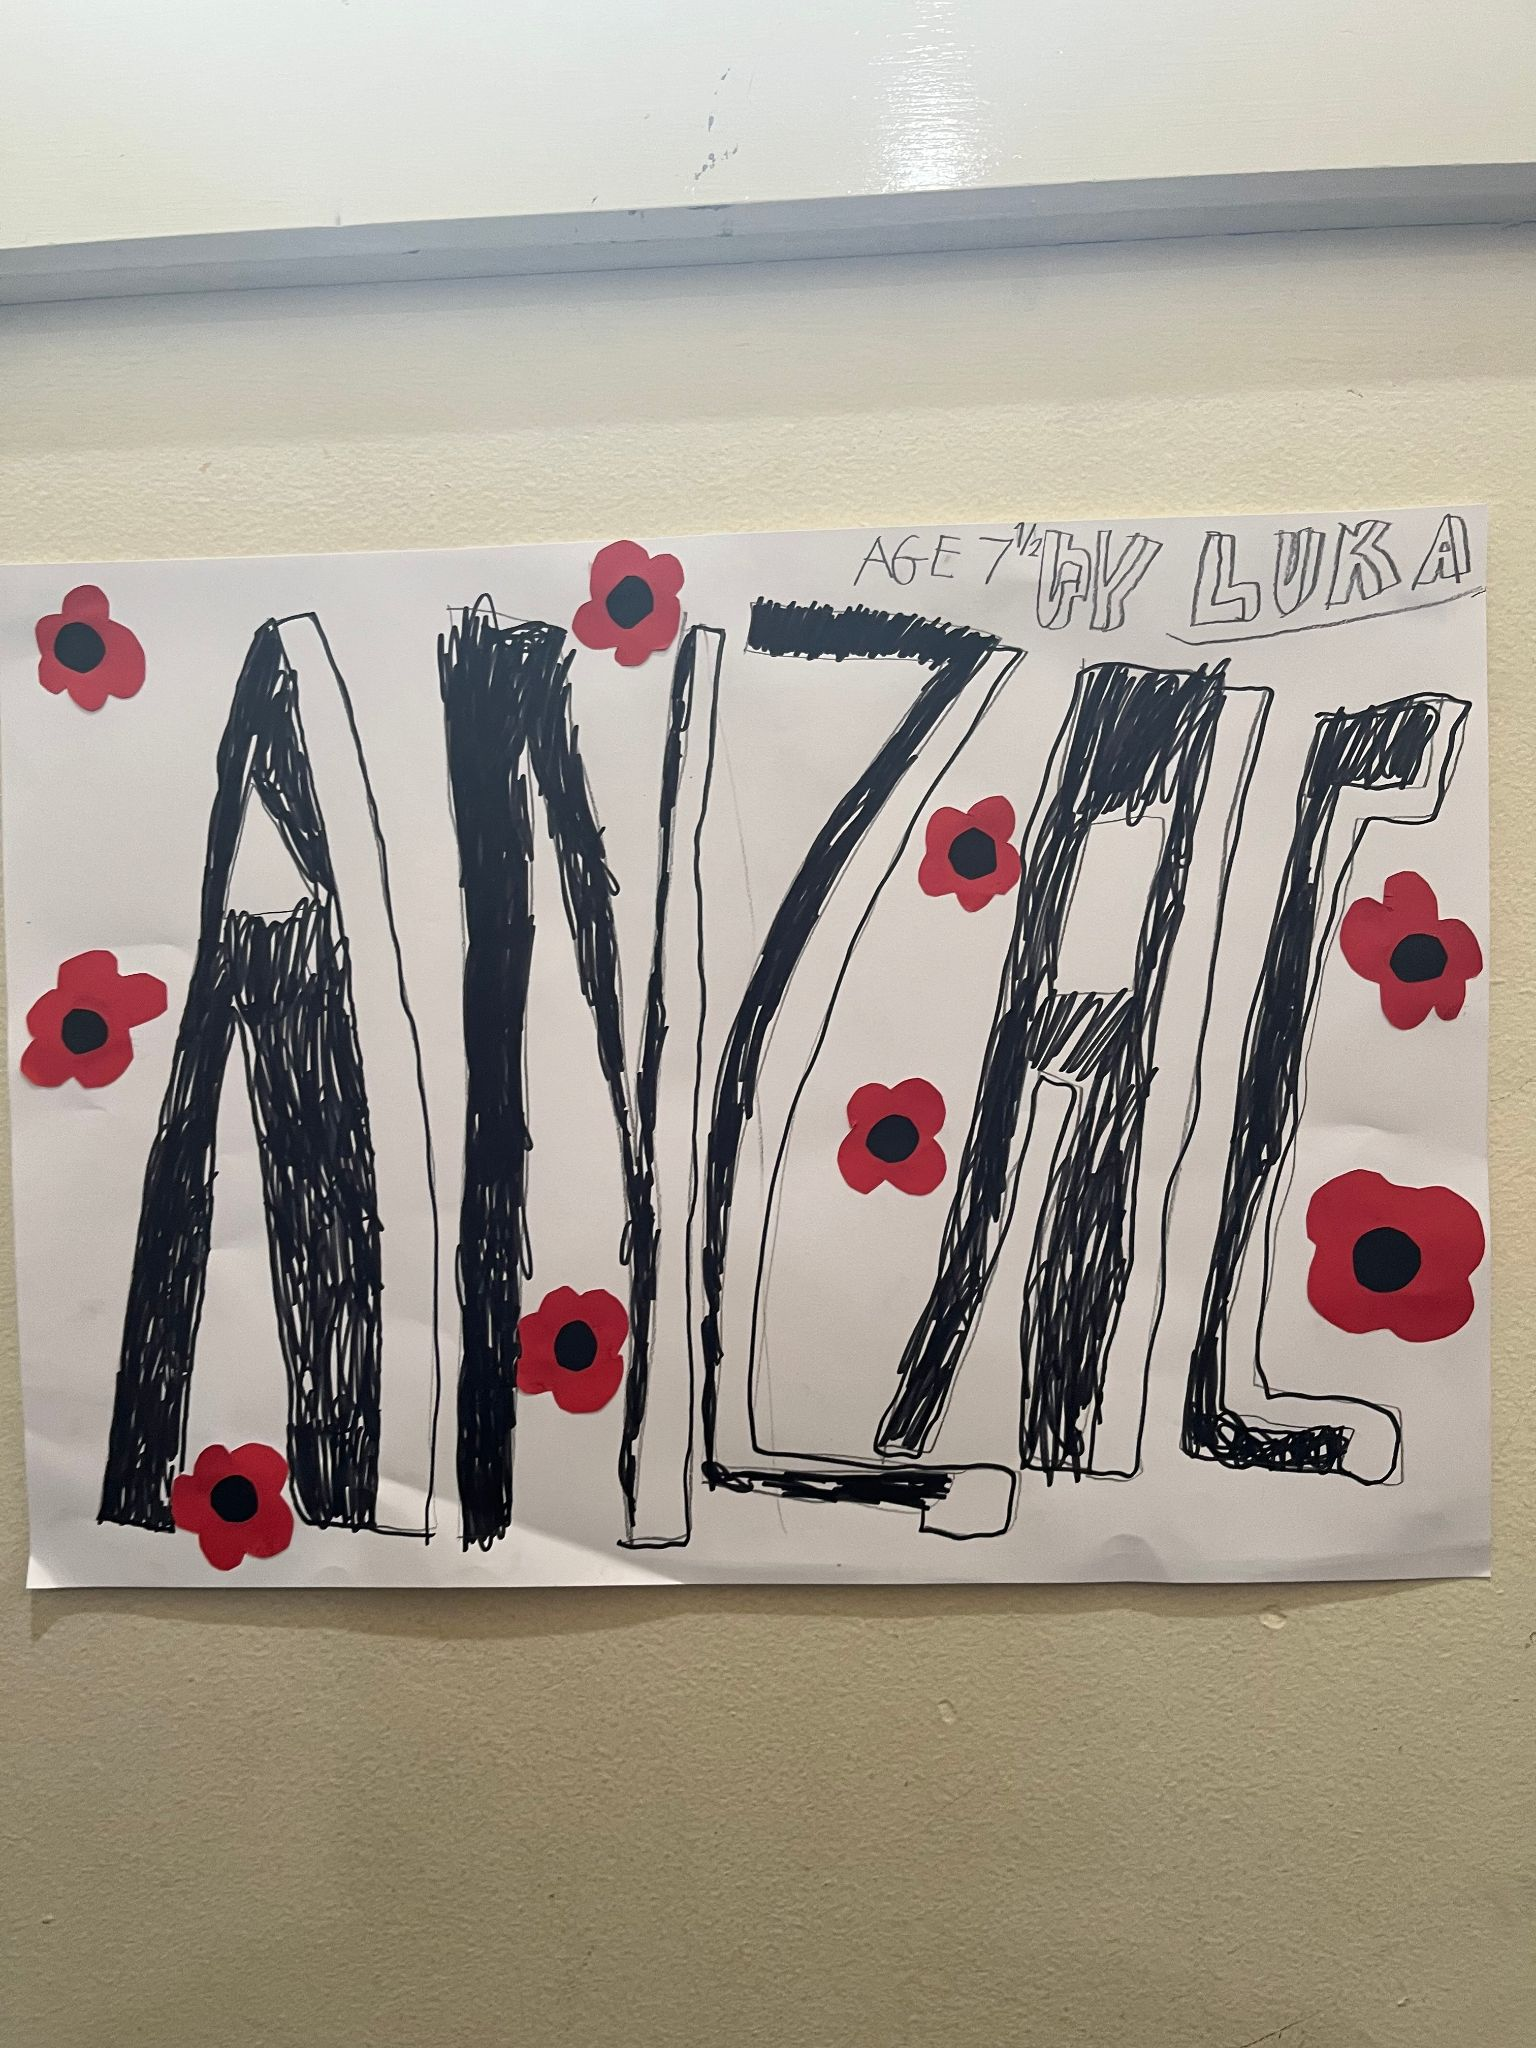 AGE 7½ BY LUKA
ANZAC